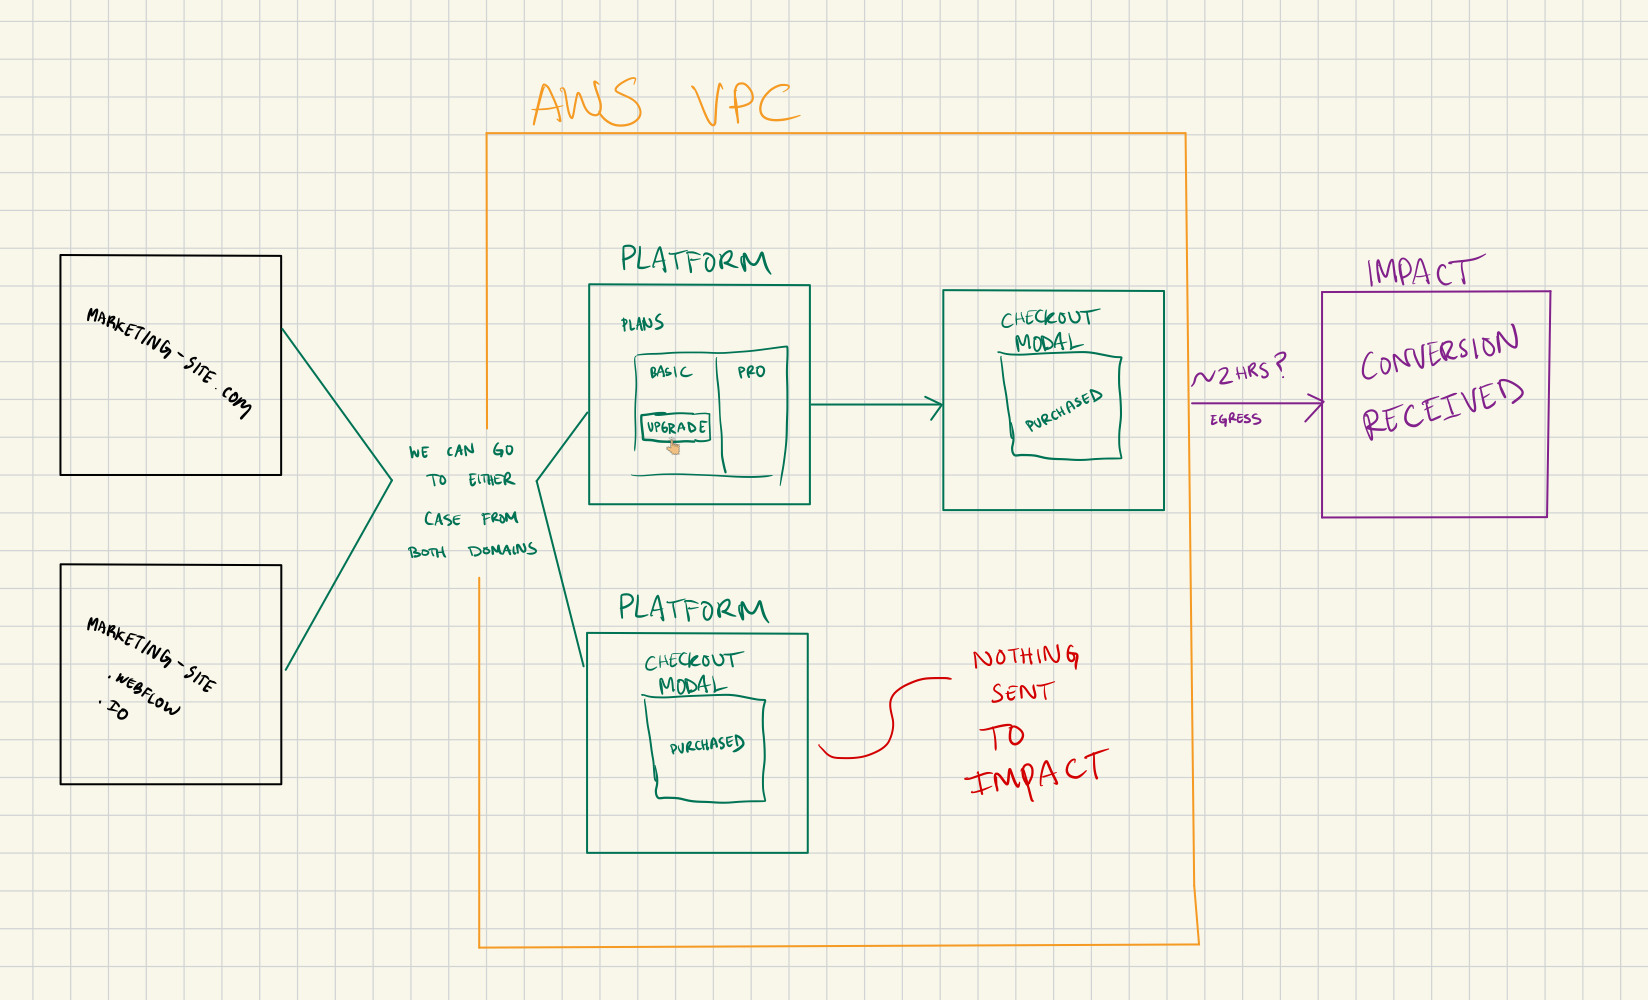 AWS VPC
MARKETING-SITE.COM
MARKETING-SITE
.WEBFLOW
.IO
WE CAN GO
TO EITHER
CASE FROM
BOTH DOMAINS
PLATFORM
PLANS
BASIC
PRO
UPGRADE
CHECKOUT
MODAL
PURCHASED
~2HRS?
EGRESS
IMPACT
CONVERSION
RECEIVED
PLATFORM
CHECKOUT
MODAL
PURCHASED
NOTHING
SENT
TO
IMPACT